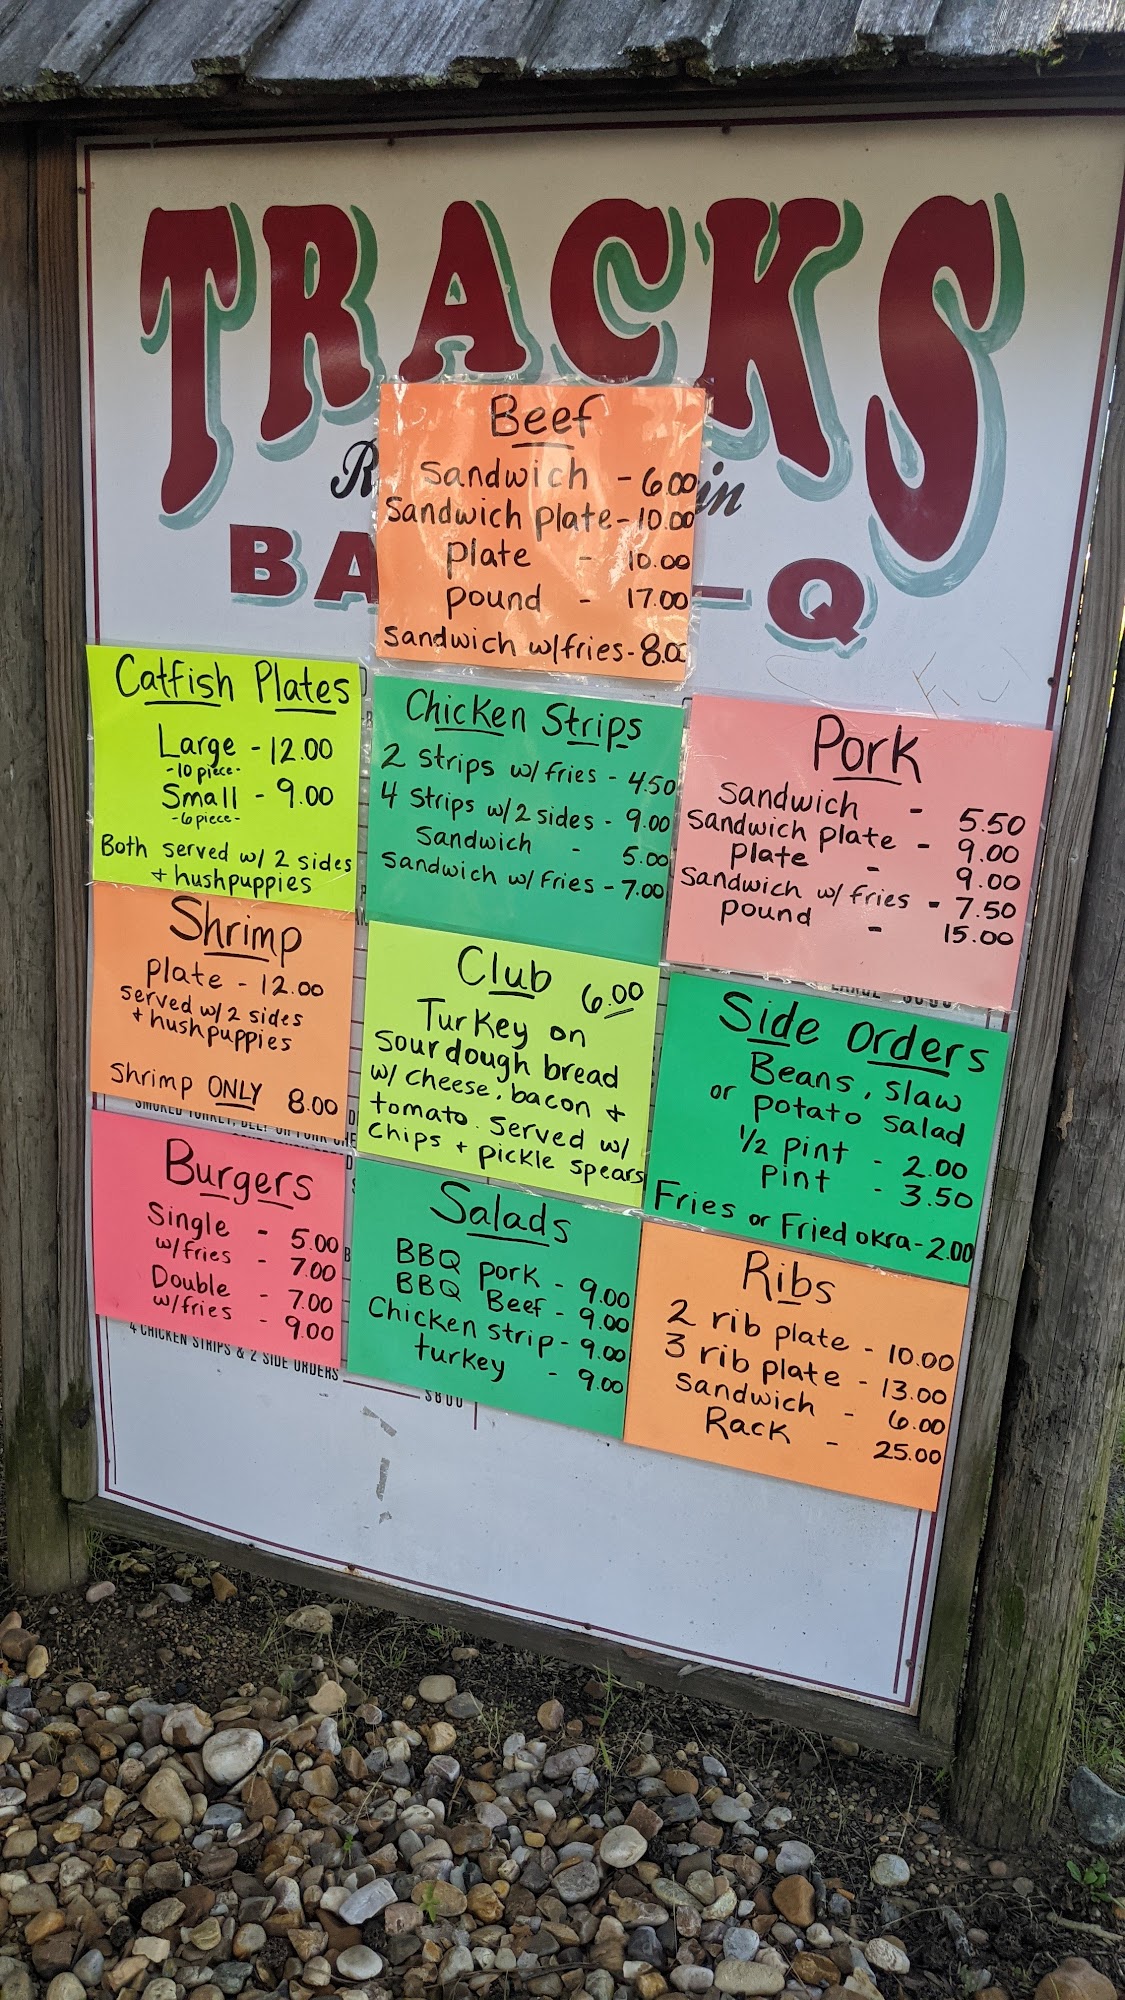 TRACKS
Beef
Sandwich - 6.00
Sandwich plate - 10.00
plate - 10.00
pound - 17.00
Sandwich w/fries - 8.00
BA
-Q
Catfish Plates
Large - 12.00
- 10 piece -
Small - 9.00
- 6 piece -
Both served w/ 2 sides
+ hushpuppies
Chicken Strips
2 strips w/ fries - 4.50
4 strips w/ 2 sides - 9.00
Sandwich - 5.00
Sandwich w/ fries - 7.00
Pork
Sandwich - 5.50
Sandwich plate - 9.00
plate - 9.00
Sandwich w/ fries - 7.50
pound - 15.00
Shrimp
plate - 12.00
served w/ 2 sides
+ hushpuppies
Shrimp ONLY 8.00
Club 6.00
Turkey on
sourdough bread
w/ cheese, bacon +
tomato. served w/
chips + pickle spears
Side Orders
Beans, slaw
or potato salad
1/2 pint - 2.00
pint - 3.50
Fries or Fried okra - 2.00
Burgers
Single - 5.00
w/fries - 7.00
Double - 7.00
w/fries - 9.00
Salads
BBQ pork - 9.00
BBQ Beef - 9.00
Chicken strip - 9.00
turkey - 9.00
Ribs
2 rib plate - 10.00
3 rib plate - 13.00
Sandwich - 6.00
Rack - 25.00
4 CHICKEN STRIPS & 2 SIDE ORDERS